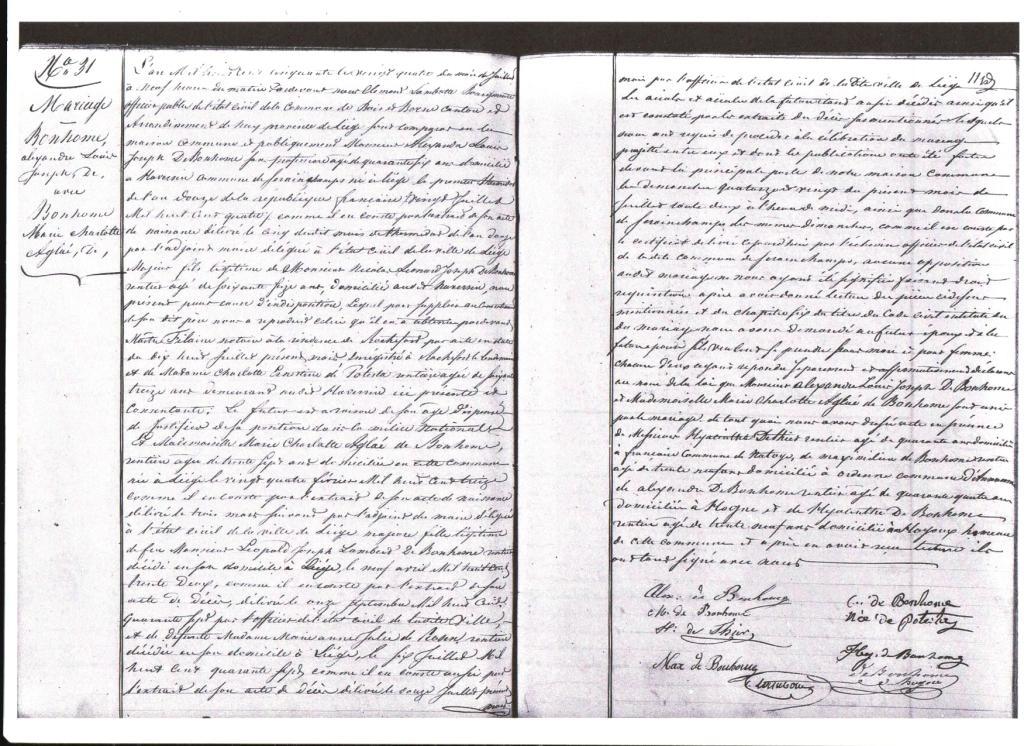 No 31
Mariage
Bonhome,
Alexandre Louis
Joseph, de,
avec
Bonhome
Marie Charlotte
Aglaé, de,
L'an Mil huit cent cinquante le vingt quatre du mois de Juillet
à neuf heures du matin Pardevant nous Clément Lambotte
officier public de l'état civil de la Commune de Bois et Borsu Canton de
Arrondissement de huy province de Liège sont comparus en la
maison commune et publiquement Monsieur Alexandre Louis
Joseph De Bonhome sans profession agé de quarante six ans domicilié
à Haversin commune de Serainchamps né à Liège le premier thermidor
de l'an douze de la république française (vingt Juillet
Mil huit cent quatre) comme il en conste par extrait de son acte
de naissance délivré le cinq dudit mois de thermidor de l'an douze
par l'adjoint maire délégué à l'état civil de la ville de Liège
Majeur fils légitime de Monsieur Nicolas Léonard Joseph de Bonhome
rentier agé de soixante seize ans, domicilié audit Haversin, non
présent pour cause d'indisposition, lequel pour suppléer au consentement
de son dit père nous a reproduit celui qu'il en a obtenu pardevant
Maître Filaine notaire à la résidence de Rochefort par acte en date
du dix huit Juillet présent mois enregistré à Rochefort le lendemain
et de Madame Charlotte Ernestine de Potesta rentière agée de soixante
treize ans demeurant audit Haversin ici présente et
consentante. Le futur est à raison de son age dispensé
de Justifier de sa position dans la milice Nationale
Et Mademoiselle Marie Charlotte Aglaé de Bonhome,
rentière agée de trente sept ans domiciliée en cette commune
née à Liège le vingt quatre février Mil huit cent treize
comme il en conste par l'extrait de son acte de naissance
délivré le trois mars suivant par l'adjoint du maire délégué
à l'état civil de la ville de Liège majeure fille légitime
de feu Monsieur Léopold Joseph Lambert de Bonhome rentier
décédé en son domicile à Liège, le neuf avril Mil huit cent
trente deux, comme il en conste par l'extrait de son
acte de décès, délivré le onze septembre Mil huit cent
quarante sept par l'officier de l'état civil de laditte Ville,
et de défunte Madame Marie anne Julie de rentière
décédée en son domicile à Liège, le six Juillet Mil
huit cent quarante sept, comme il en conste aussi par
l'extrait de son acte de décès délivré le douze Juillet présent
mois
mois par l'officier de l'état civil de ladite ville de Liège
les aieuls et aieules de la future étant aussi décédés ainsi qu'il
est constaté par les extraits des décès lesquels
nous ont requis de procéder à la célébration du mariage
projetté entre eux et dont les publications ont été faites
devant la principale porte de notre maison Commune
les dimanches quatorze et vingt un du présent mois de
Juillet toute deux à l'heure de midi, ainsi que dans la commune
de Serainchamps les mêmes dimanches, comme il en conste par
le certificat délivré aujourd'hui par l'échevin officier de l'état civil
de ladite commune de Serainchamps, aucune opposition
audit mariage ne nous ayant été signifiée faisant droit
réquisition après avoir donné lecture des pièces ci dessus
mentionnées et du chapitre six du titre du Code civil intitulé du
du mariage nous avons demandé au futur époux et à la
future épouse s'ils veulent se prendre pour mari et pour femme:
chacun d'eux ayant répondu séparément et affirmativement déclarons
au nom de la loi que Monsieur Alexandre Louis Joseph De Bonhome
et Mademoiselle Marie Charlotte Aglaé de Bonhome sont unis
par le mariage de tout quoi nous avons dressé acte en présence
de Messieurs Hyacinthe De thier rentier agé de quarante ans domicilié
à francesse Commune de Natoye, de maximilien de Bonhome rentier
agé de trente neuf ans domicilié à commune
de alexandre De Bonhome rentier agé de quarante quatre ans
domicilié à Hogne et de Hyacinthe De Bonhome
rentier agé de trente neuf ans domicilié à Hoyoux hameau
de cette commune et après en avoir reçu lecture ils
ont tous signé avec nous
Alex. de Bonhome
M. de Bonhome
H. de Thier
Max de Bonhome
Lambotte
C. de Bonhome
née de Potesta
Hy. de Bonhome
de Bonhome